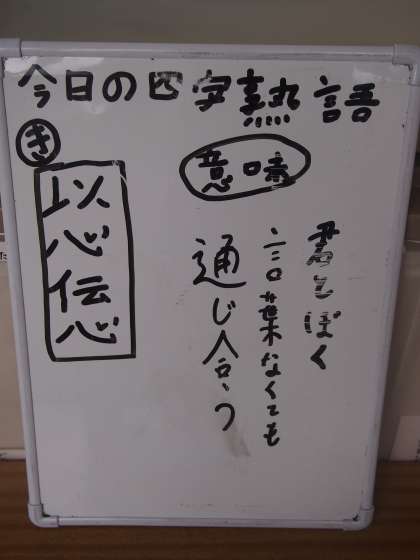 今日の四字熟語
き
以心伝心
意味
君とぼく
言葉なくても
通じ合う